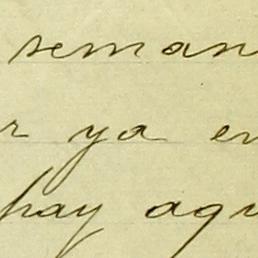 seman
r ya en
hay aqu